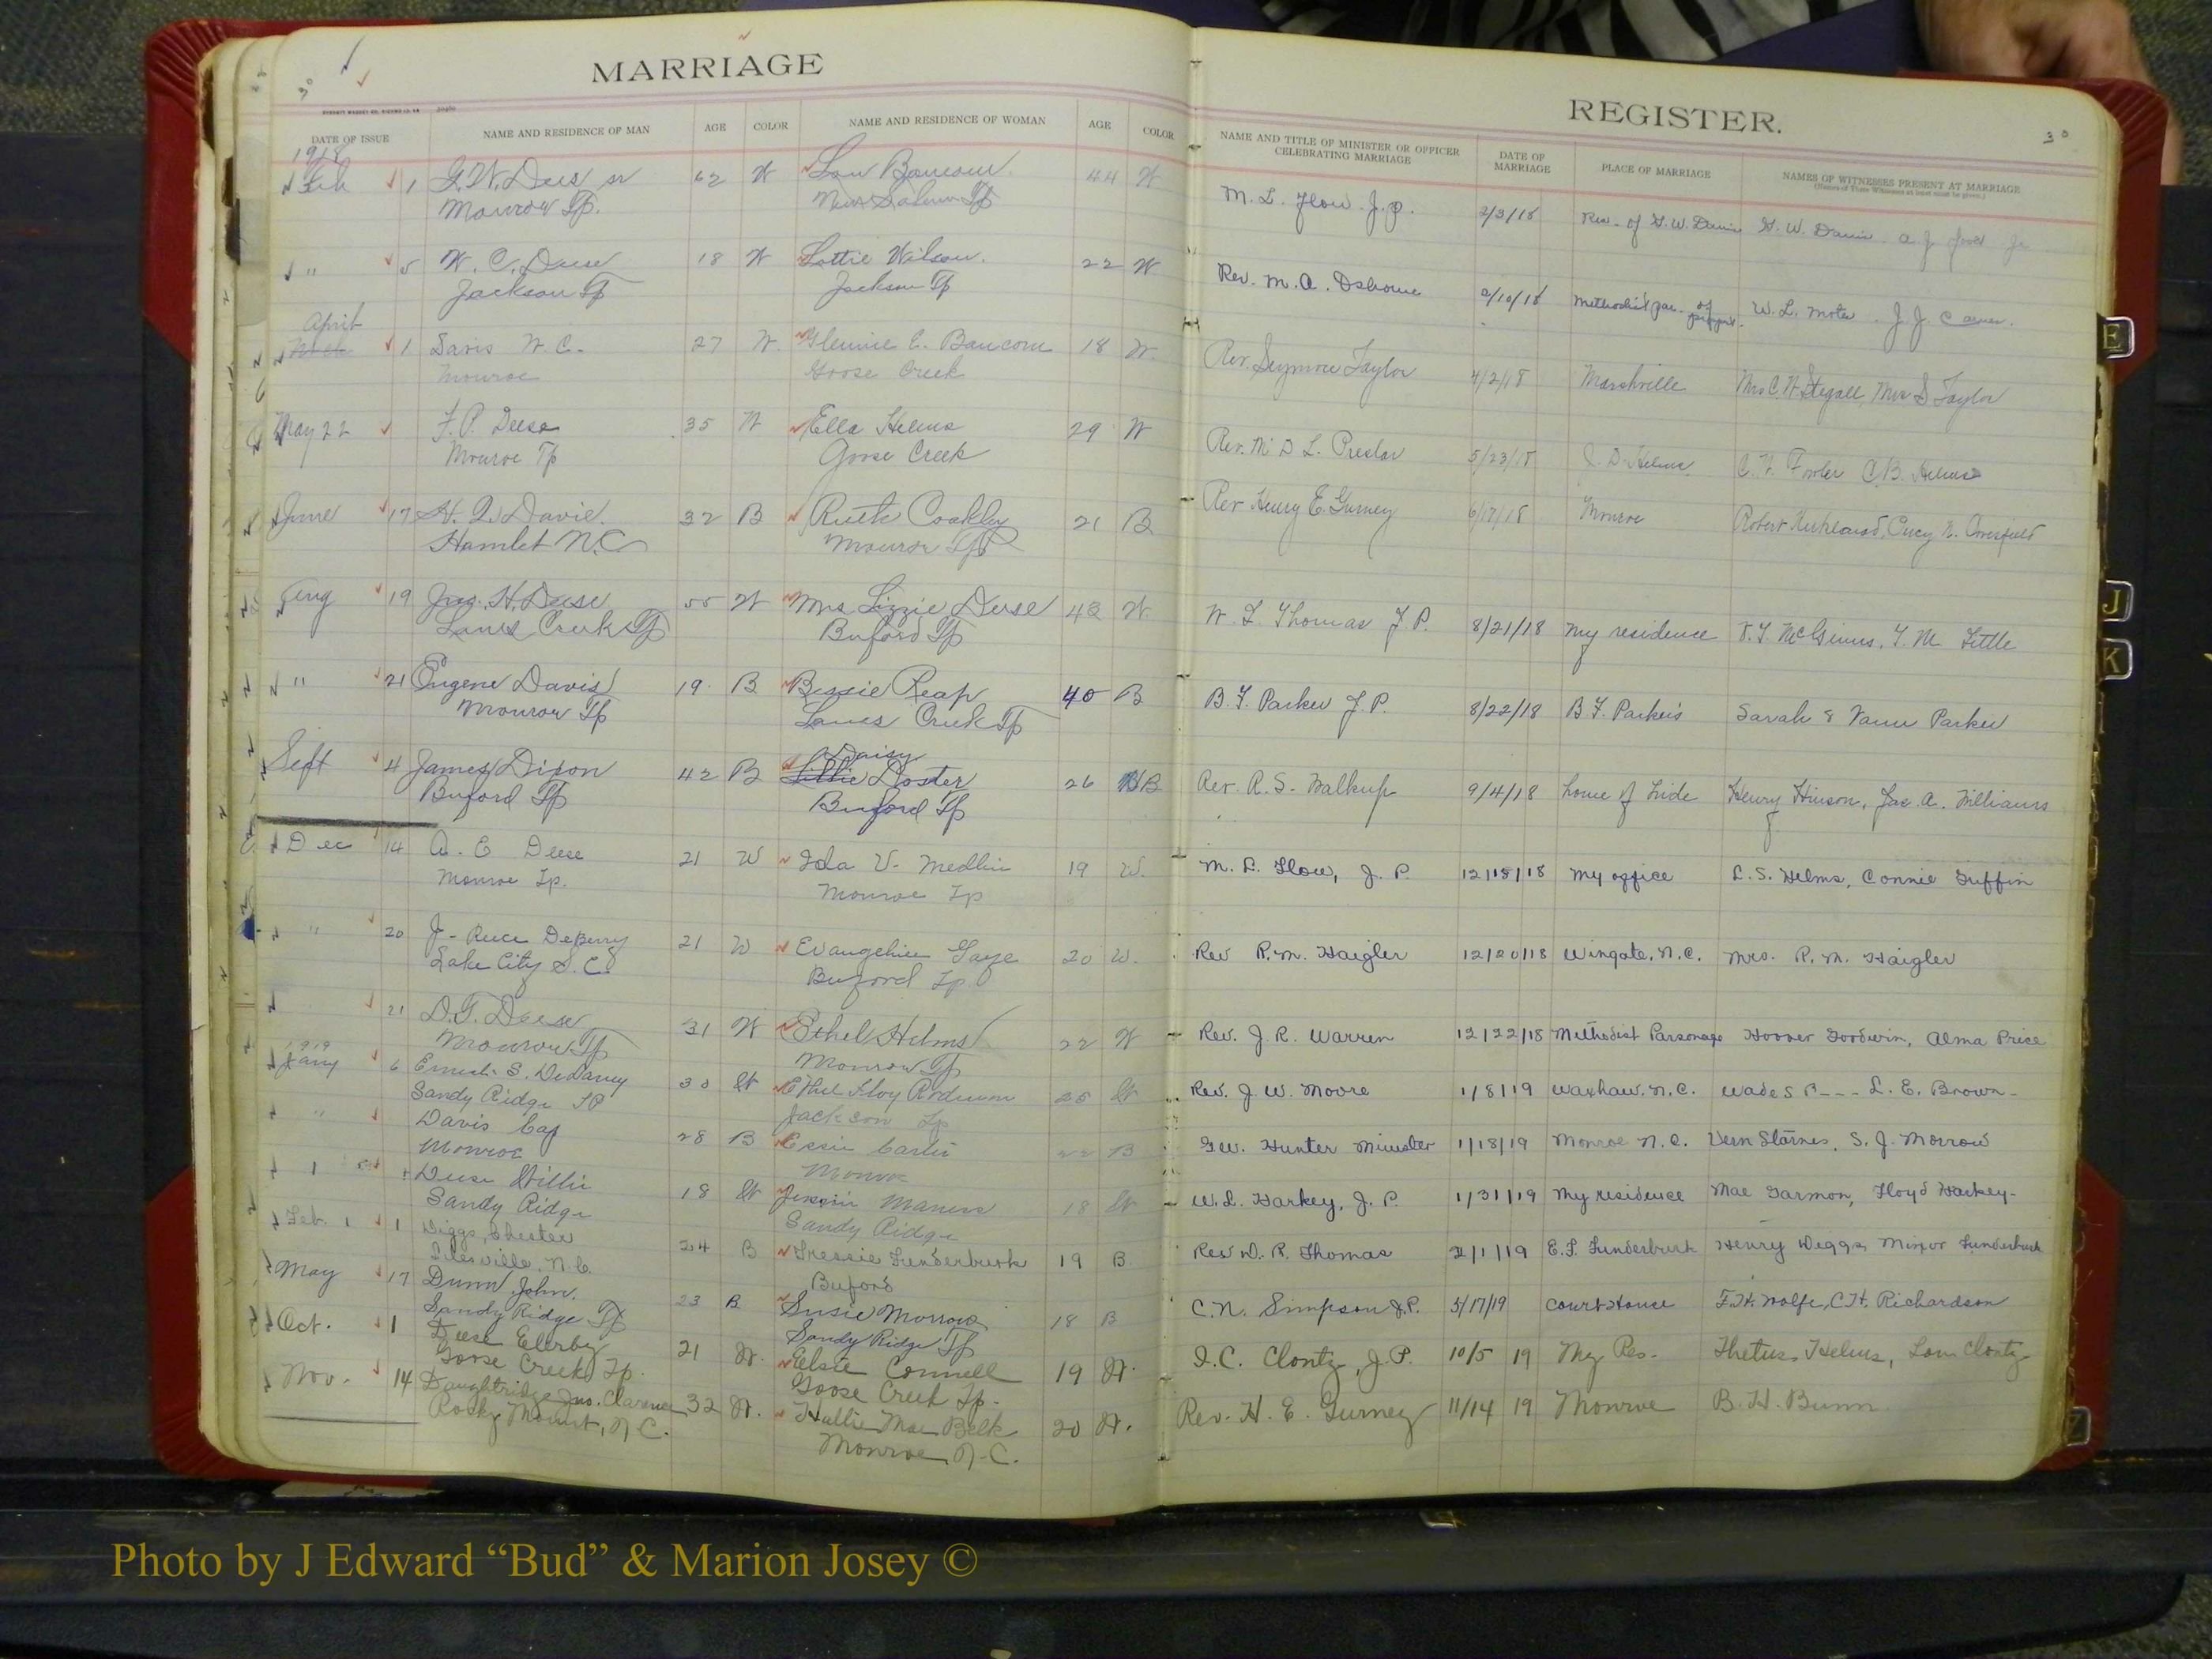 MARRIAGE
REGISTER.
30
DATE OF ISSUE
NAME AND RESIDENCE OF MAN
AGE
COLOR
NAME AND RESIDENCE OF WOMAN
AGE
COLOR
NAME AND TITLE OF MINISTER OR OFFICER CELEBRATING MARRIAGE
DATE OF MARRIAGE
PLACE OF MARRIAGE
NAMES OF WITNESSES PRESENT AT MARRIAGE
1918
Feb 1 G. W. Dees sr 62 W Lou Baucom 44 W M. L. Flow J. P. 2/3/18 Res. of G. W. Davis G. W. Davis A J
Monroe Tp. New Salem Tp
" 5 W. C. Deese 18 W Lottie Wilson 22 W Rev. M. A. Osborne 2/10/18 Methodist par. of W. L. J. J.
Jackson Tp Jackson Tp
April 1 Davis W. C. 27 W. Glennie E. Baucom 18 W. Rev. Seymore Taylor 4/2/18 Marshville Mrs C N Stegall, Mrs S Taylor
Monroe Goose Creek
May 22 F. P. Deese 35 W Ella Helms 29 W Rev. M. D. L. Preslar 5/23/18 J. D. Helms C. N. Fowler C. B. Helms
Monroe Tp Goose Creek
June 17 H. Q. Davie 32 B Ruth Coakley 21 B Rev Henry E. Gurney 6/17/18 Monroe Robert
Hamlet N.C Monroe Tp
Aug 19 Jno. H. Deese 55 W Mrs Lizzie Deese 43 W W. L. Thomas J. P. 8/21/18 my residence T. M. Little
Lanes Creek Tp Buford Tp
" 21 Eugene Davis 19 B Bessie Reap 40 B B. F. Parker J. P. 8/22/18 B F. Parkers Sarah & Vann Parker
Monroe Tp Lanes Creek Tp
Daisy
Sept 4 James Dixon 42 B Lillie Doster 26 B Rev. R. S. Walkup 9/4/18 home of bride Henry Hinson, Jas A. Williams
Buford Tp Buford Tp
Dec 14 A. C Deese 21 W Ida V. Medlin 19 W. M. L. Flow, J. P. 12/15/18 my office L. S. Helms, Connie Griffin
Monroe Tp. Monroe Tp
" 20 J. Reece DeBerry 21 W Evangeline Gaye 20 W. Rev R. M. Haigler 12/20/18 Wingate, N.C. Mrs. R. M. Haigler
Lake City S. C. Buford Tp
21 D. T. Deese 31 W Ethel Helms 22 W Rev. J. R. Warren 12/22/18 Methodist Parsonage Hoover Goodwin, Alma Price
Monroe Tp Monroe Tp
1919
Jany 6 Ernest S. DeLaney 30 W Ethel Floy Rodman 25 W Rev. J. W. Moore 1/8/19 Waxhaw, N. C. Wade S P--- L. E. Brown
Sandy Ridge TP Jackson Tp
" Davis Cap 28 B Essie 22 B G W. Hunter Minister 1/18/19 Monroe N. C. Vern Starnes, S. J. Morrow
Monroe Monroe
Deese Willie 18 W Jessie Maness 18 W W. L. Harkey, J. P. 1/31/19 My residence Mae Garmon, Floyd Harkey
Sandy Ridge Sandy Ridge
Feb. 1 Diggs, Chester 24 B Tressie Funderburk 19 B. Rev D. R. Thomas 2/1/19 E. L. Funderburk Henry Diggs, Minor Funderburk
Lilesville, N. C. Buford
May 17 Dunn John 23 B Susie Morrow 18 B C. N. Simpson J. P. 5/17/19 Court House F. H. Wolfe, C. H. Richardson
Sandy Ridge Tp Sandy Ridge Tp
Oct. 1 Deese Ellerby 21 W. Elsie Connell 19 W. I. C. Clontz, J. P. 10/5 19 My Res. Thetus Helms, Lom Clontz
Goose Creek Tp. Goose Creek Tp.
Nov. 14 Daughtridge Jno. Clarence 32 W. Hallie Mae Belk 20 W. Rev. H. E. Gurney 11/14 19 Monroe B. H. Bunn
Rocky Mount, N. C. Monroe, N. C.
E
J
K
Z
Photo by J Edward “Bud” & Marion Josey ©